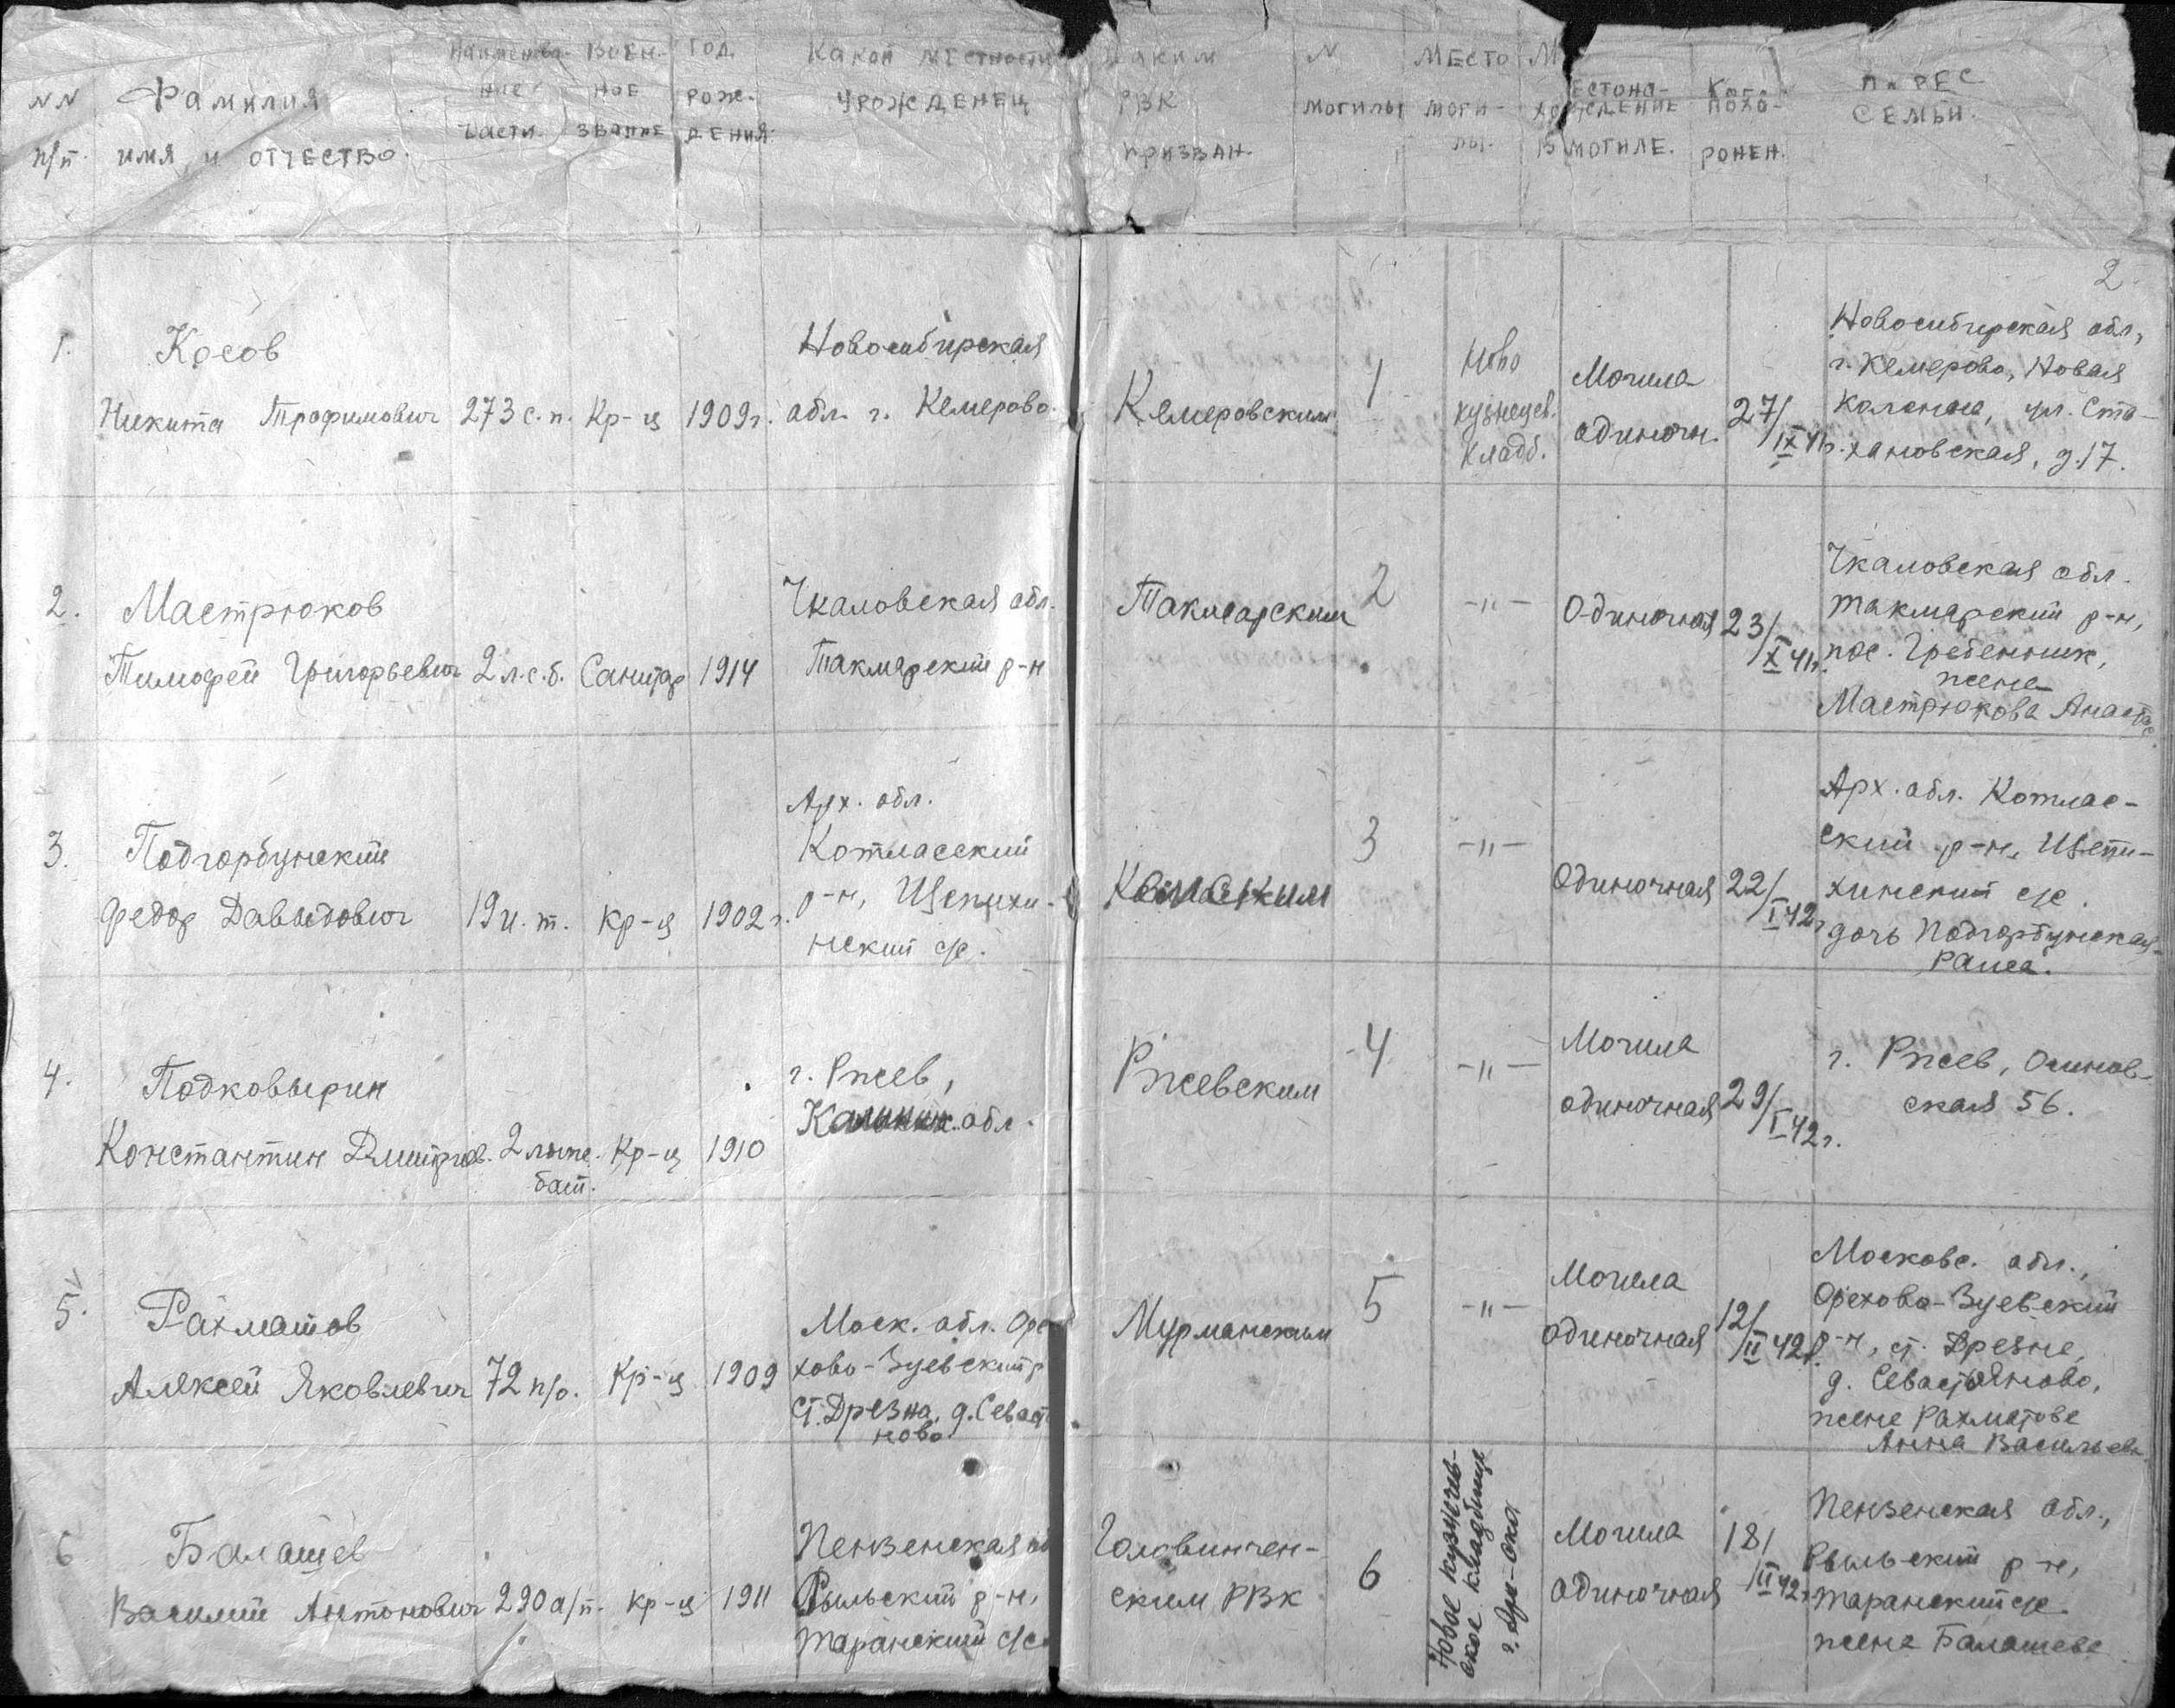 NN п/п.
Фамилия имя и отчество.
Наименова- ние части.
Воен- ное звание
Год рож- дения.
Какой местности урожденец
Каким РВК призван.
N могилы
Место моги- лы.
Местона- хождение в могиле.
Когда похо- ронен.
Адрес семьи.
2
1.
Косов
Никита Трофимович
273 с.п.
Кр-ц
1909г.
Новосибирская
обл. г. Кемерово.
Кемеровским
1
Ново
кузнецев.
кладб.
Могила
одиночн.
27/IX 41г.
Новосибирская обл,
г. Кемерово, Новая
Колония, ул. Ста-
хановская, д.17.
2.
Мастрюков
Тимофей Григорьевич
2 л.с.б.
Санитар
1914
Чкаловская обл.
Такмарский р-н
Такмарским
2
-"-
Одиночная
23/X 41г.
Чкаловская обл.
Такмарский р-н,
пос. Гребенник,
жена
Мастрюкова Анастас.
3.
Подгорбунский
Федор Давыдович
19 и.т.
Кр-ц
1902 г.
Арх. обл.
Котласский
р-н, Щепихи-
нский с/с.
3
-"-
Одиночная
22/I 42г
Арх. обл. Котлас-
ский р-н, Щепи-
хинский с/с.
дочь Подгорбунская
Раиса.
4.
Подковырин
Константин Дмитриев.
2 лыж.
бат.
Кр-ц
1910
г. Ржев,
Калинин. обл.
Ржевским
4
-"-
Могила
одиночная
29/I 42г.
г. Ржев, Осинов-
ская 56.
5.
Рахматов
Алексей Яковлевич
72 п/о.
Кр-ц
1909
Моск. обл. Оре
хово-Зуевский р
ст. Дрезна, д. Севаст
ново
Мурманским
5
-"-
Могила
одиночная
12/II 42г.
Московс. обл.,
Орехово-Зуевский
р-н, ст. Дрезна,
д. Севастьяново,
жена Рахматова
Анна Васильев
6
Балашев
Василий Антонович
290 а/п.
Кр-ц
1911
Пензенская об
Рыльский р-н,
Таранский с/с.
Головинчен-
ским РВК
6
Новое кузнечев-
ское кладбище
Могила
одиночная
18/II 42г
Пензенская обл.,
Рыльский р-н,
Таранский с/с.
жена Балашева